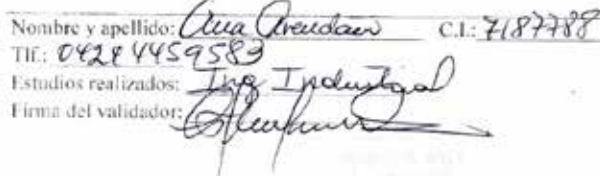 Nombre y apellido: Ana Avendaño C.I.: 7187788
Tlf.: 04244459583
Estudios realizados: Ing Industrial
Firma del validador: